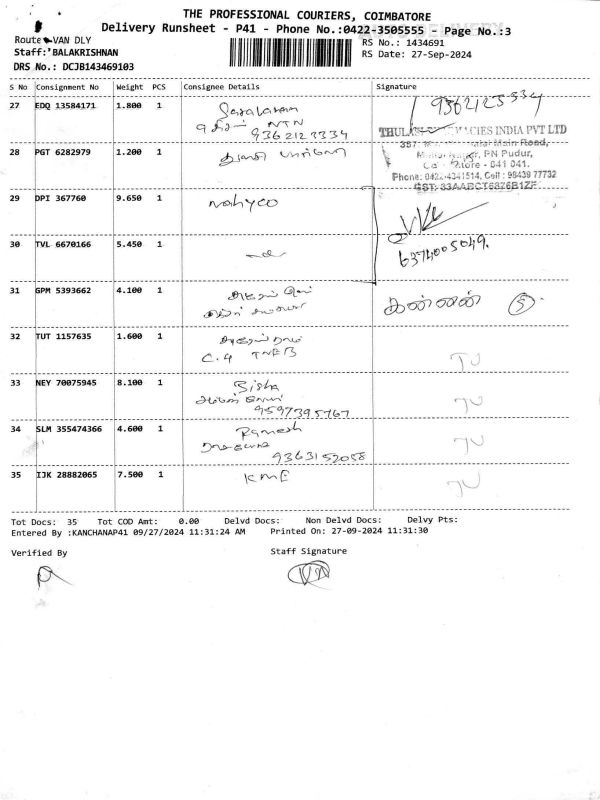 THE PROFESSIONAL COURIERS, COIMBATORE
Delivery Runsheet - P41 - Phone No.:0422-3505555 - Page No.:3
Route VAN DLY
RS No.: 1434691
Staff: BALAKRISHNAN
RS Date: 27-Sep-2024
DRS No.: DCJB143469103
S No Consignment No Weight PCS Consignee Details Signature
27 EDQ 13584171 1.800 1
NTN
9362123334
9362123334
28 PGT 6282979 1.200 1
INDIA PVT LTD
Main Road,
PN Pudur,
641 041.
Phone: 0422-4341514, Cell: 98439 77732
GST: 33AABCT6876B1ZF
29 DPI 367760 9.650 1
30 TVL 6670166 5.450 1
6374005049.
31 GPM 5393662 4.100 1
கண்ணன் 5
32 TUT 1157635 1.600 1
C.4 TNEB
TU
33 NEY 70075945 8.100 1 Bisha
9597395767
TU
34 SLM 355474366 4.600 1 Ramesh
9363152058
TU
35 IJK 28882065 7.500 1 KME
TU
Tot Docs: 35 Tot COD Amt: 0.00 Delvd Docs: Non Delvd Docs: Delvy Pts:
Entered By :KANCHANAP41 09/27/2024 11:31:24 AM Printed On: 27-09-2024 11:31:30
Verified By
Staff Signature